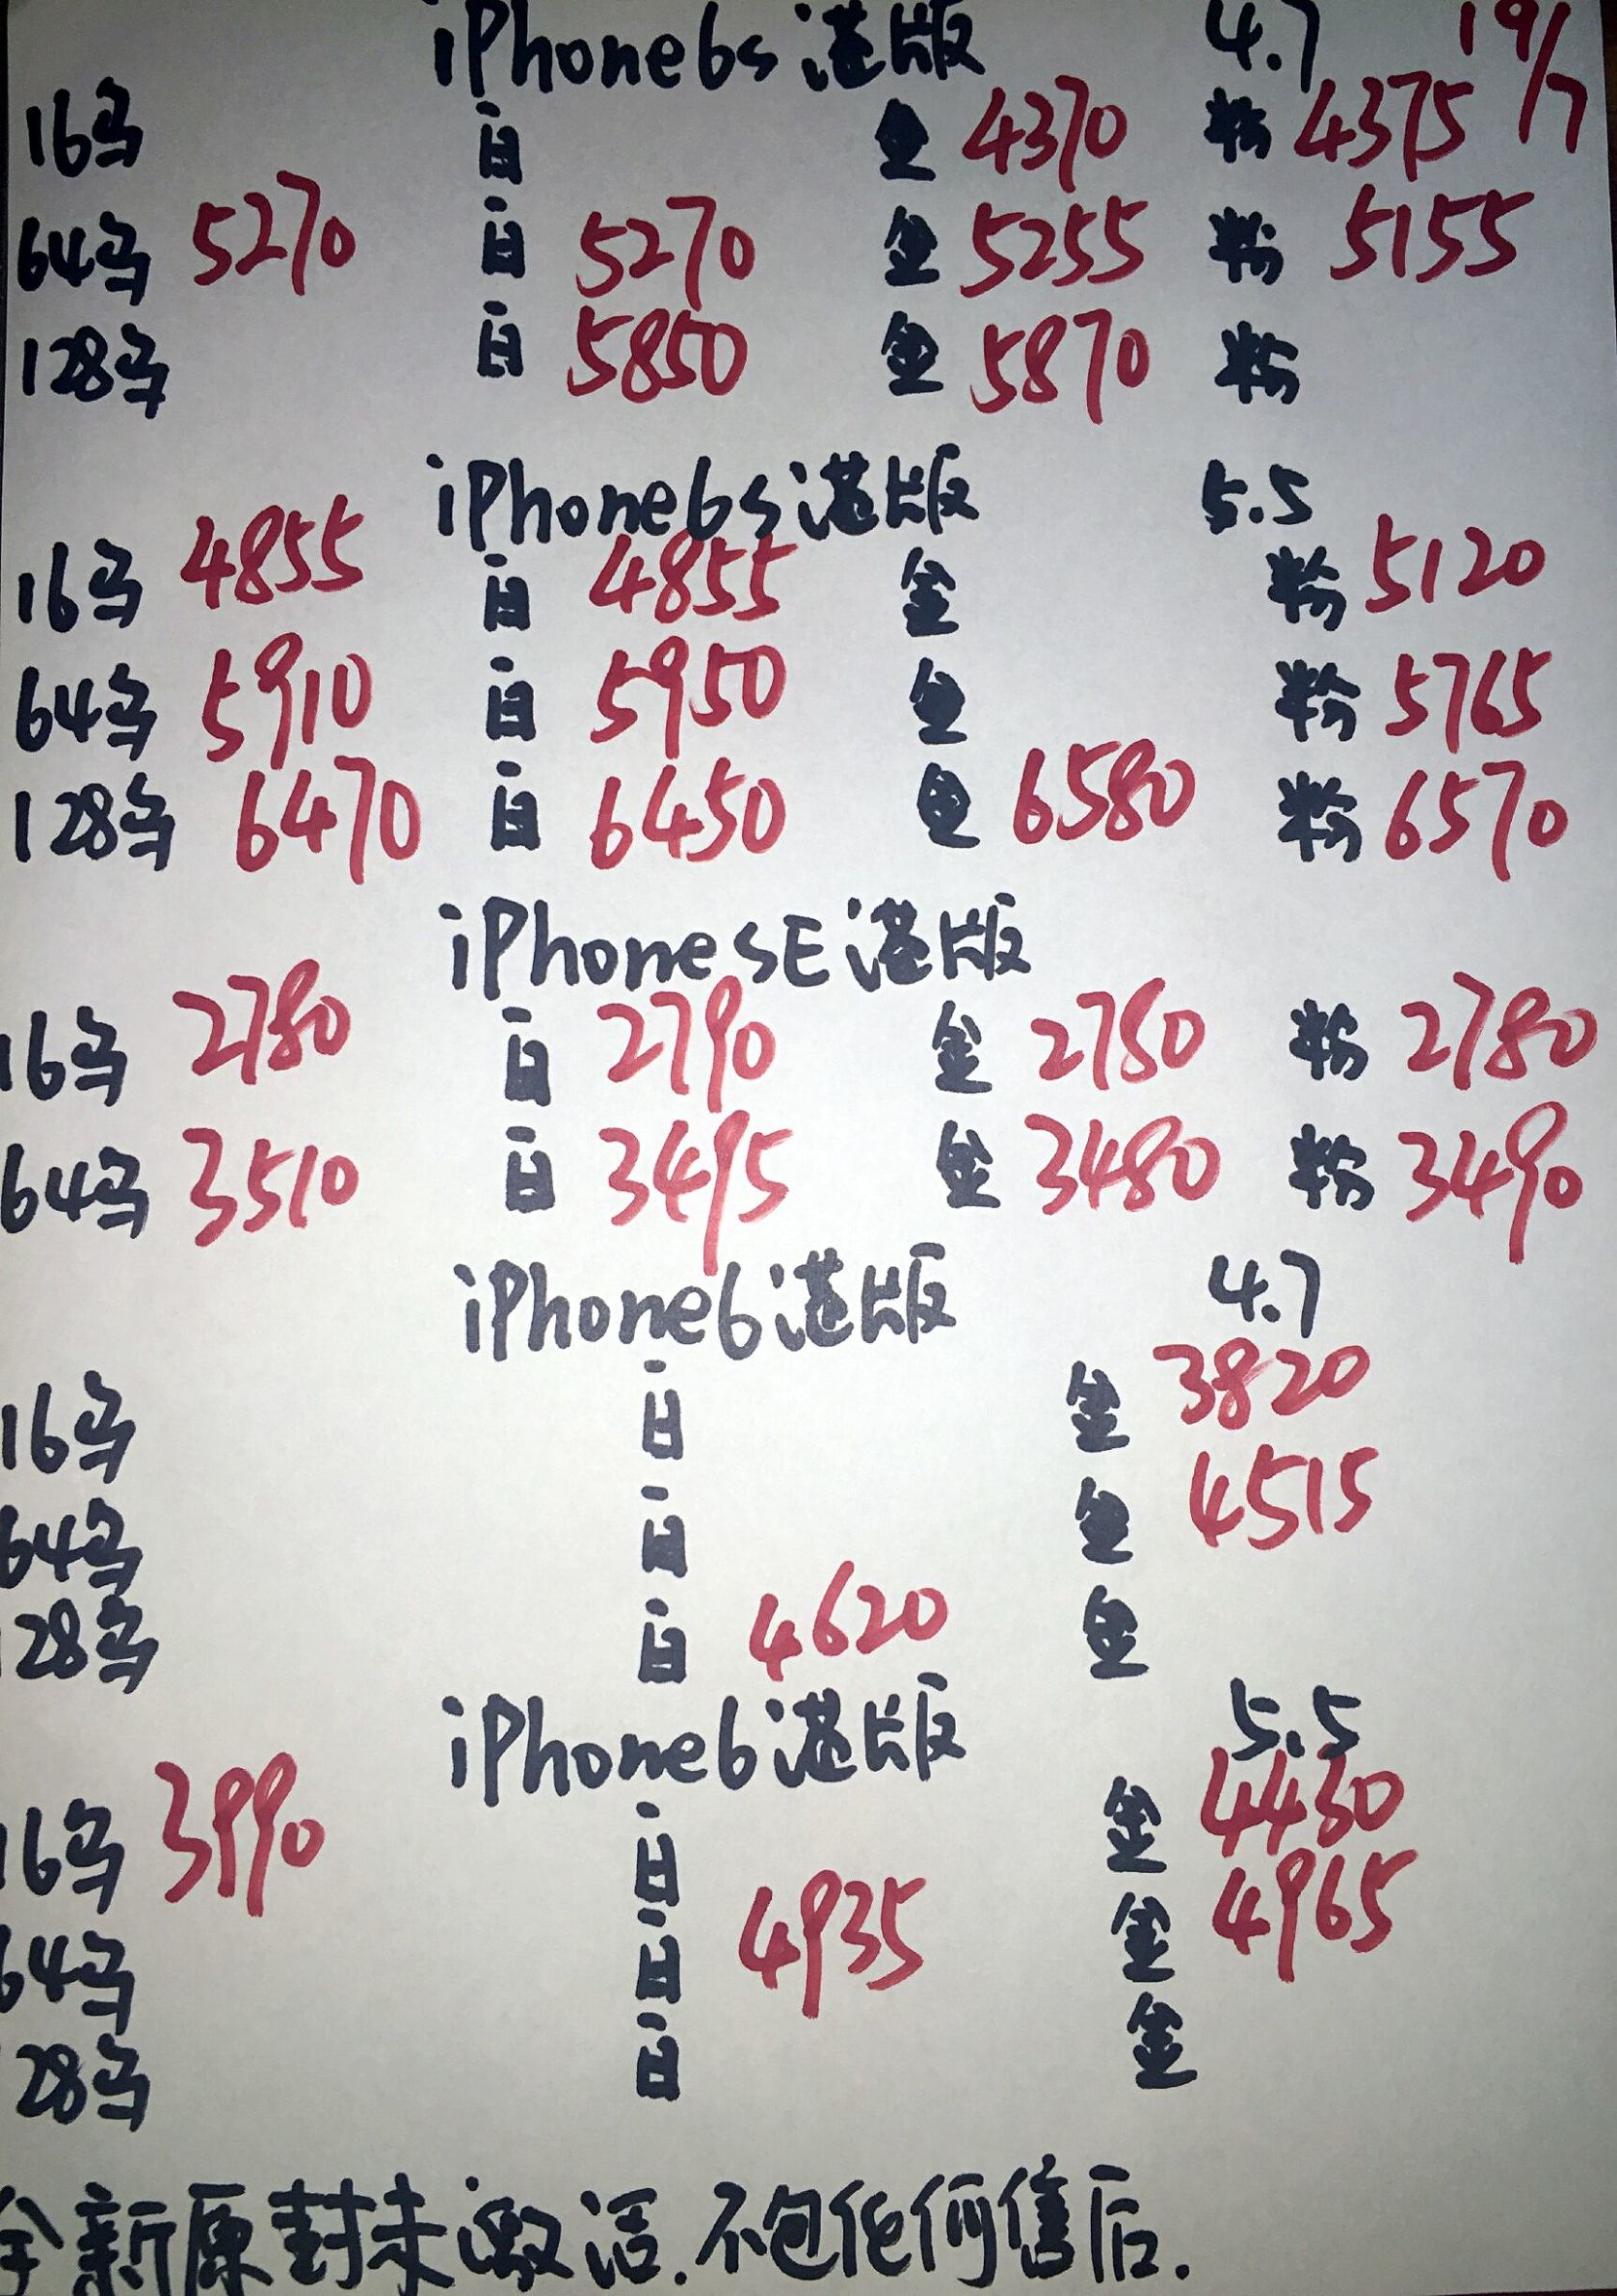 iPhone6s港版 4.7 19/7
16乌 白 金 4370 粉 4375
64乌 5270 白 5270 金 5255 粉 5155
128乌 白 5850 金 5870 粉
iPhone6s港版 5.5
16乌 4855 白 4855 金 粉 5120
64乌 5910 白 5950 金 粉 5765
128乌 6470 白 6450 金 6580 粉 6570
iPhoneSE港版
16乌 2780 白 2790 金 2780 粉 2780
64乌 3510 白 3495 金 3480 粉 3490
iPhone6港版 4.7
16乌 白 金 3820
64乌 白 金 4515
28乌 白 4620 金
iPhone6港版 5.5
16乌 3990 白 金 4430
64乌 白 4935 金 4965
28乌 白 金
全新原封未激活.不包任何售后.